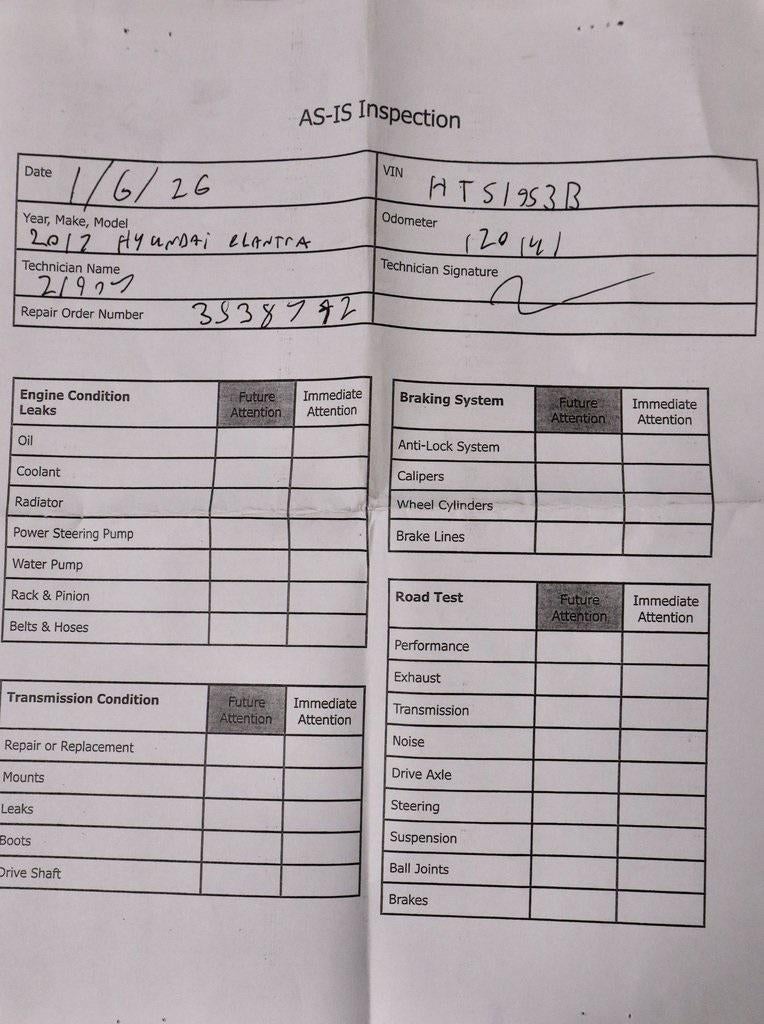 AS-IS Inspection
Date 1/6/26
VIN HTS1953B
Year, Make, Model
2017 HYUNDAI ELANTRA
Odometer
120141
Technician Name
Technician Signature
Repair Order Number
Engine Condition
Leaks
Future
Attention
Immediate
Attention
Oil
Coolant
Radiator
Power Steering Pump
Water Pump
Rack & Pinion
Belts & Hoses
Transmission Condition
Future
Attention
Immediate
Attention
Repair or Replacement
Mounts
Leaks
Boots
Drive Shaft
Braking System
Future
Attention
Immediate
Attention
Anti-Lock System
Calipers
Wheel Cylinders
Brake Lines
Road Test
Future
Attention
Immediate
Attention
Performance
Exhaust
Transmission
Noise
Drive Axle
Steering
Suspension
Ball Joints
Brakes